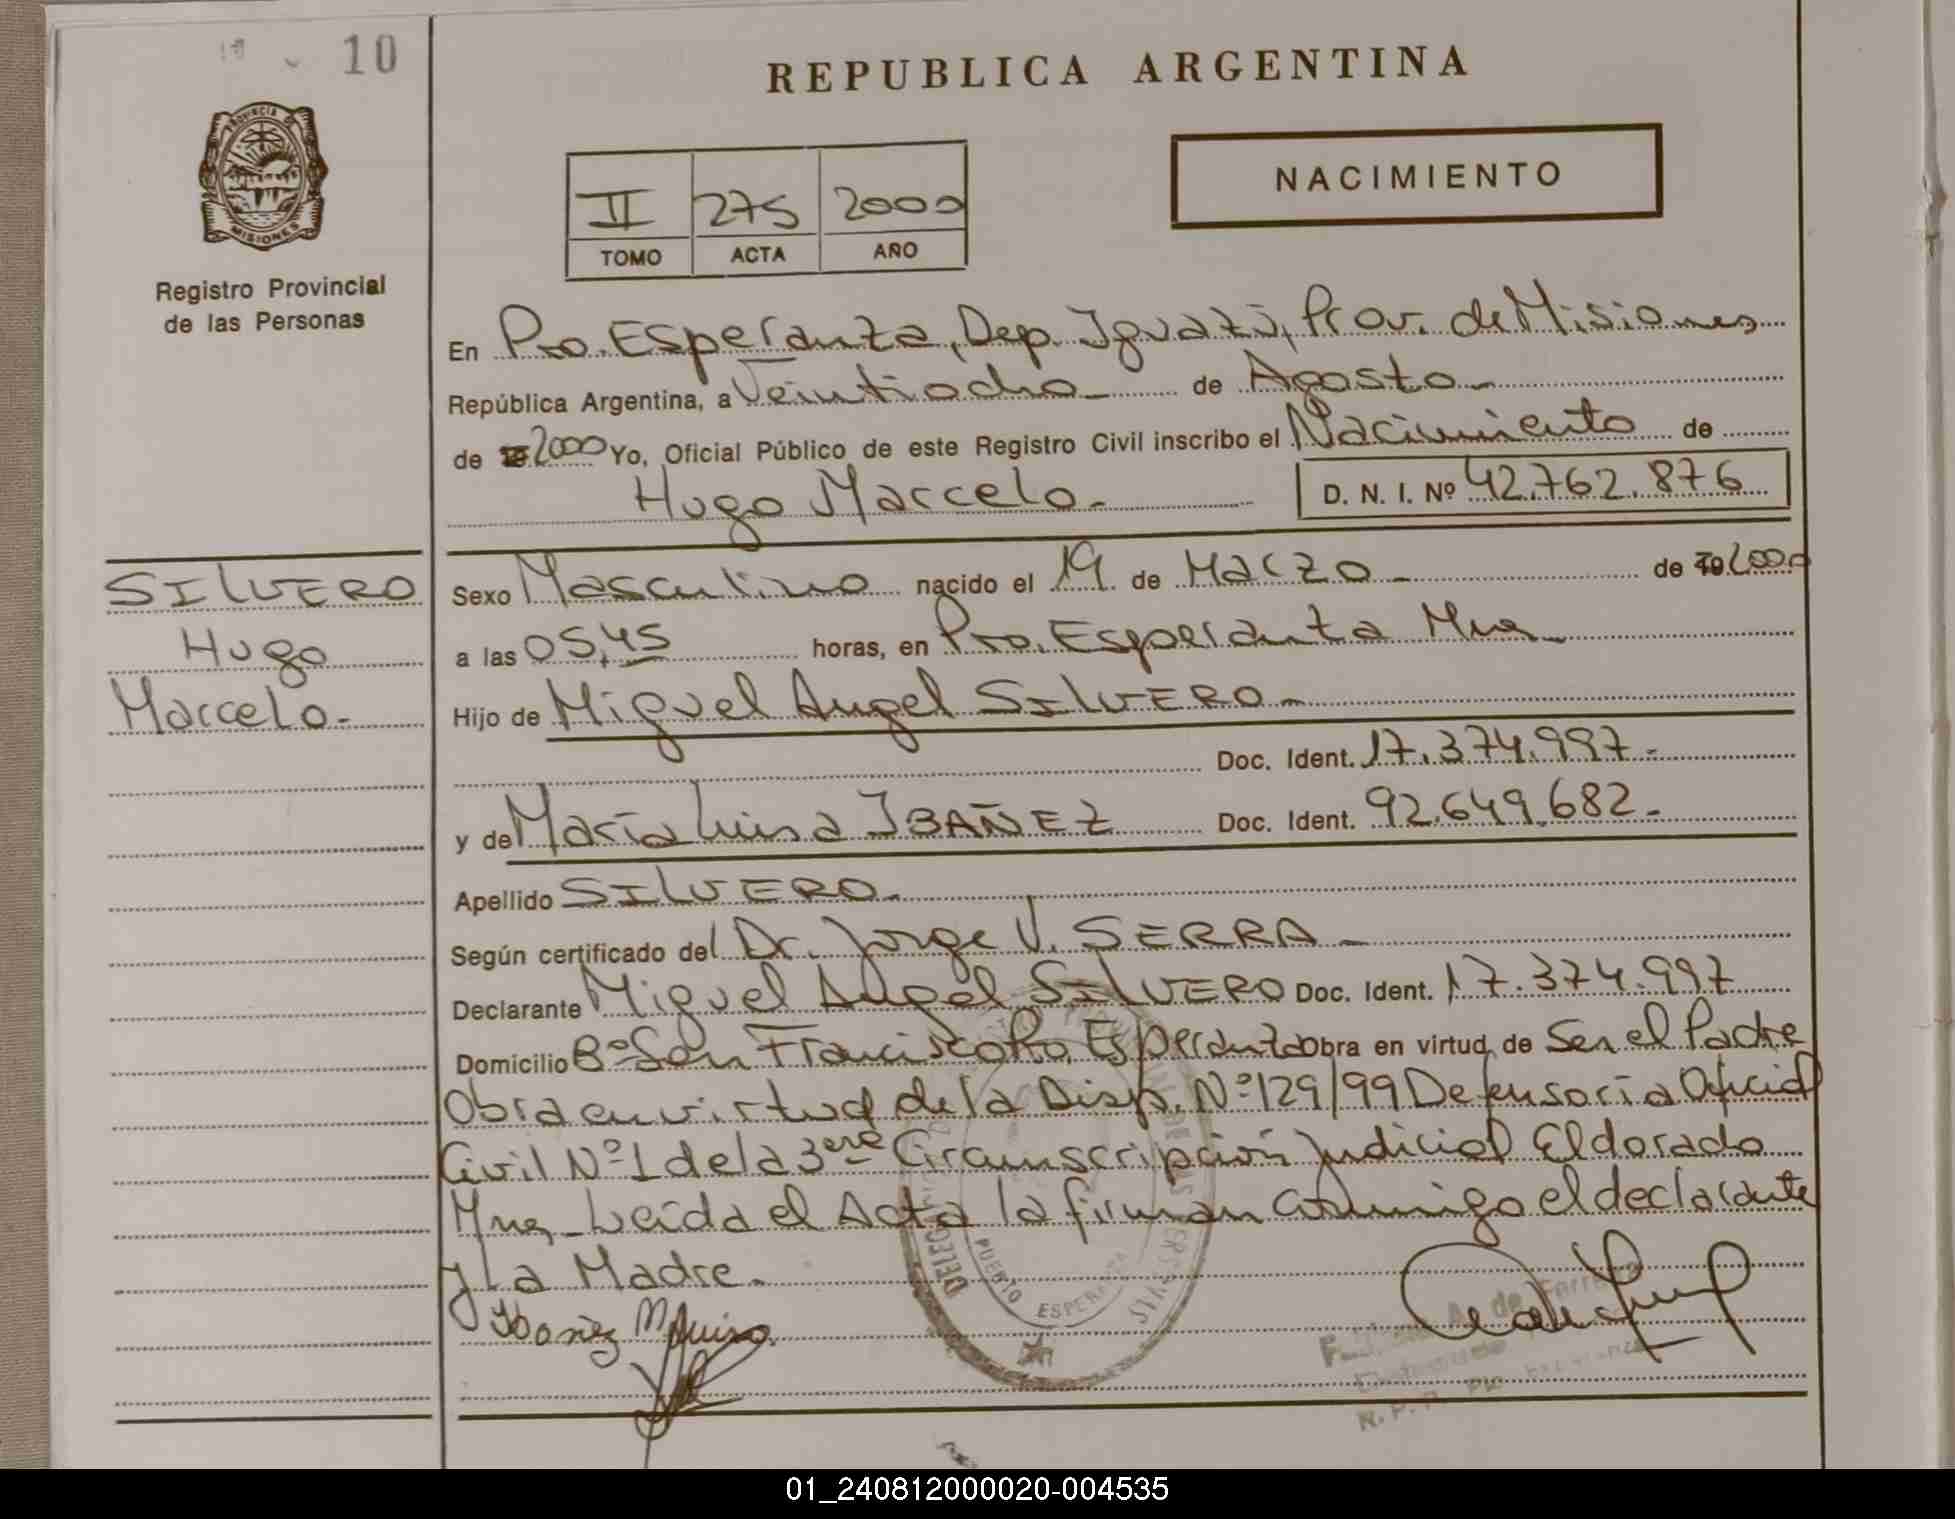 10
REPUBLICA ARGENTINA
PROVINCIA DE
MISIONES
Registro Provincial
de las Personas
II 275 2000
TOMO ACTA AÑO
NACIMIENTO
En Pto. Esperanza, Dep. Iguazú, Prov. de Misiones
República Argentina, a Veintiocho de Agosto
de 2000 Yo, Oficial Público de este Registro Civil inscribo el Nacimiento de
Hugo Marcelo.- D. N. I. Nº 42.762.876
SILVERO
Hugo
Marcelo.-
Sexo Masculino nacido el 19 de Marzo de 19 2000
a las 05,45 horas, en Pto. Esperanza Mnes
Hijo de Miguel Angel SILVERO
Doc. Ident. 17.374.997.-
y de María Luisa IBAÑEZ Doc. Ident. 92.649.682.-
Apellido SILVERO.
Según certificado del Dr. Jorge V. SERRA
Declarante Miguel Angel SILVERO Doc. Ident. 17.374.997
Domicilio Bº San Francisco Pto. Esperanza Obra en virtud de Ser el Padre
Obra en virtud de la Disp. Nº 129/99 Defensoría Oficial
Civil Nº 1 de la 3era Circunscripción Judicial Eldorado
Mnes Leída el Acta la firman conmigo el declarante
y La Madre.
Ibañez M Luisa
PUERTO ESPERANZA
01_240812000020-004535